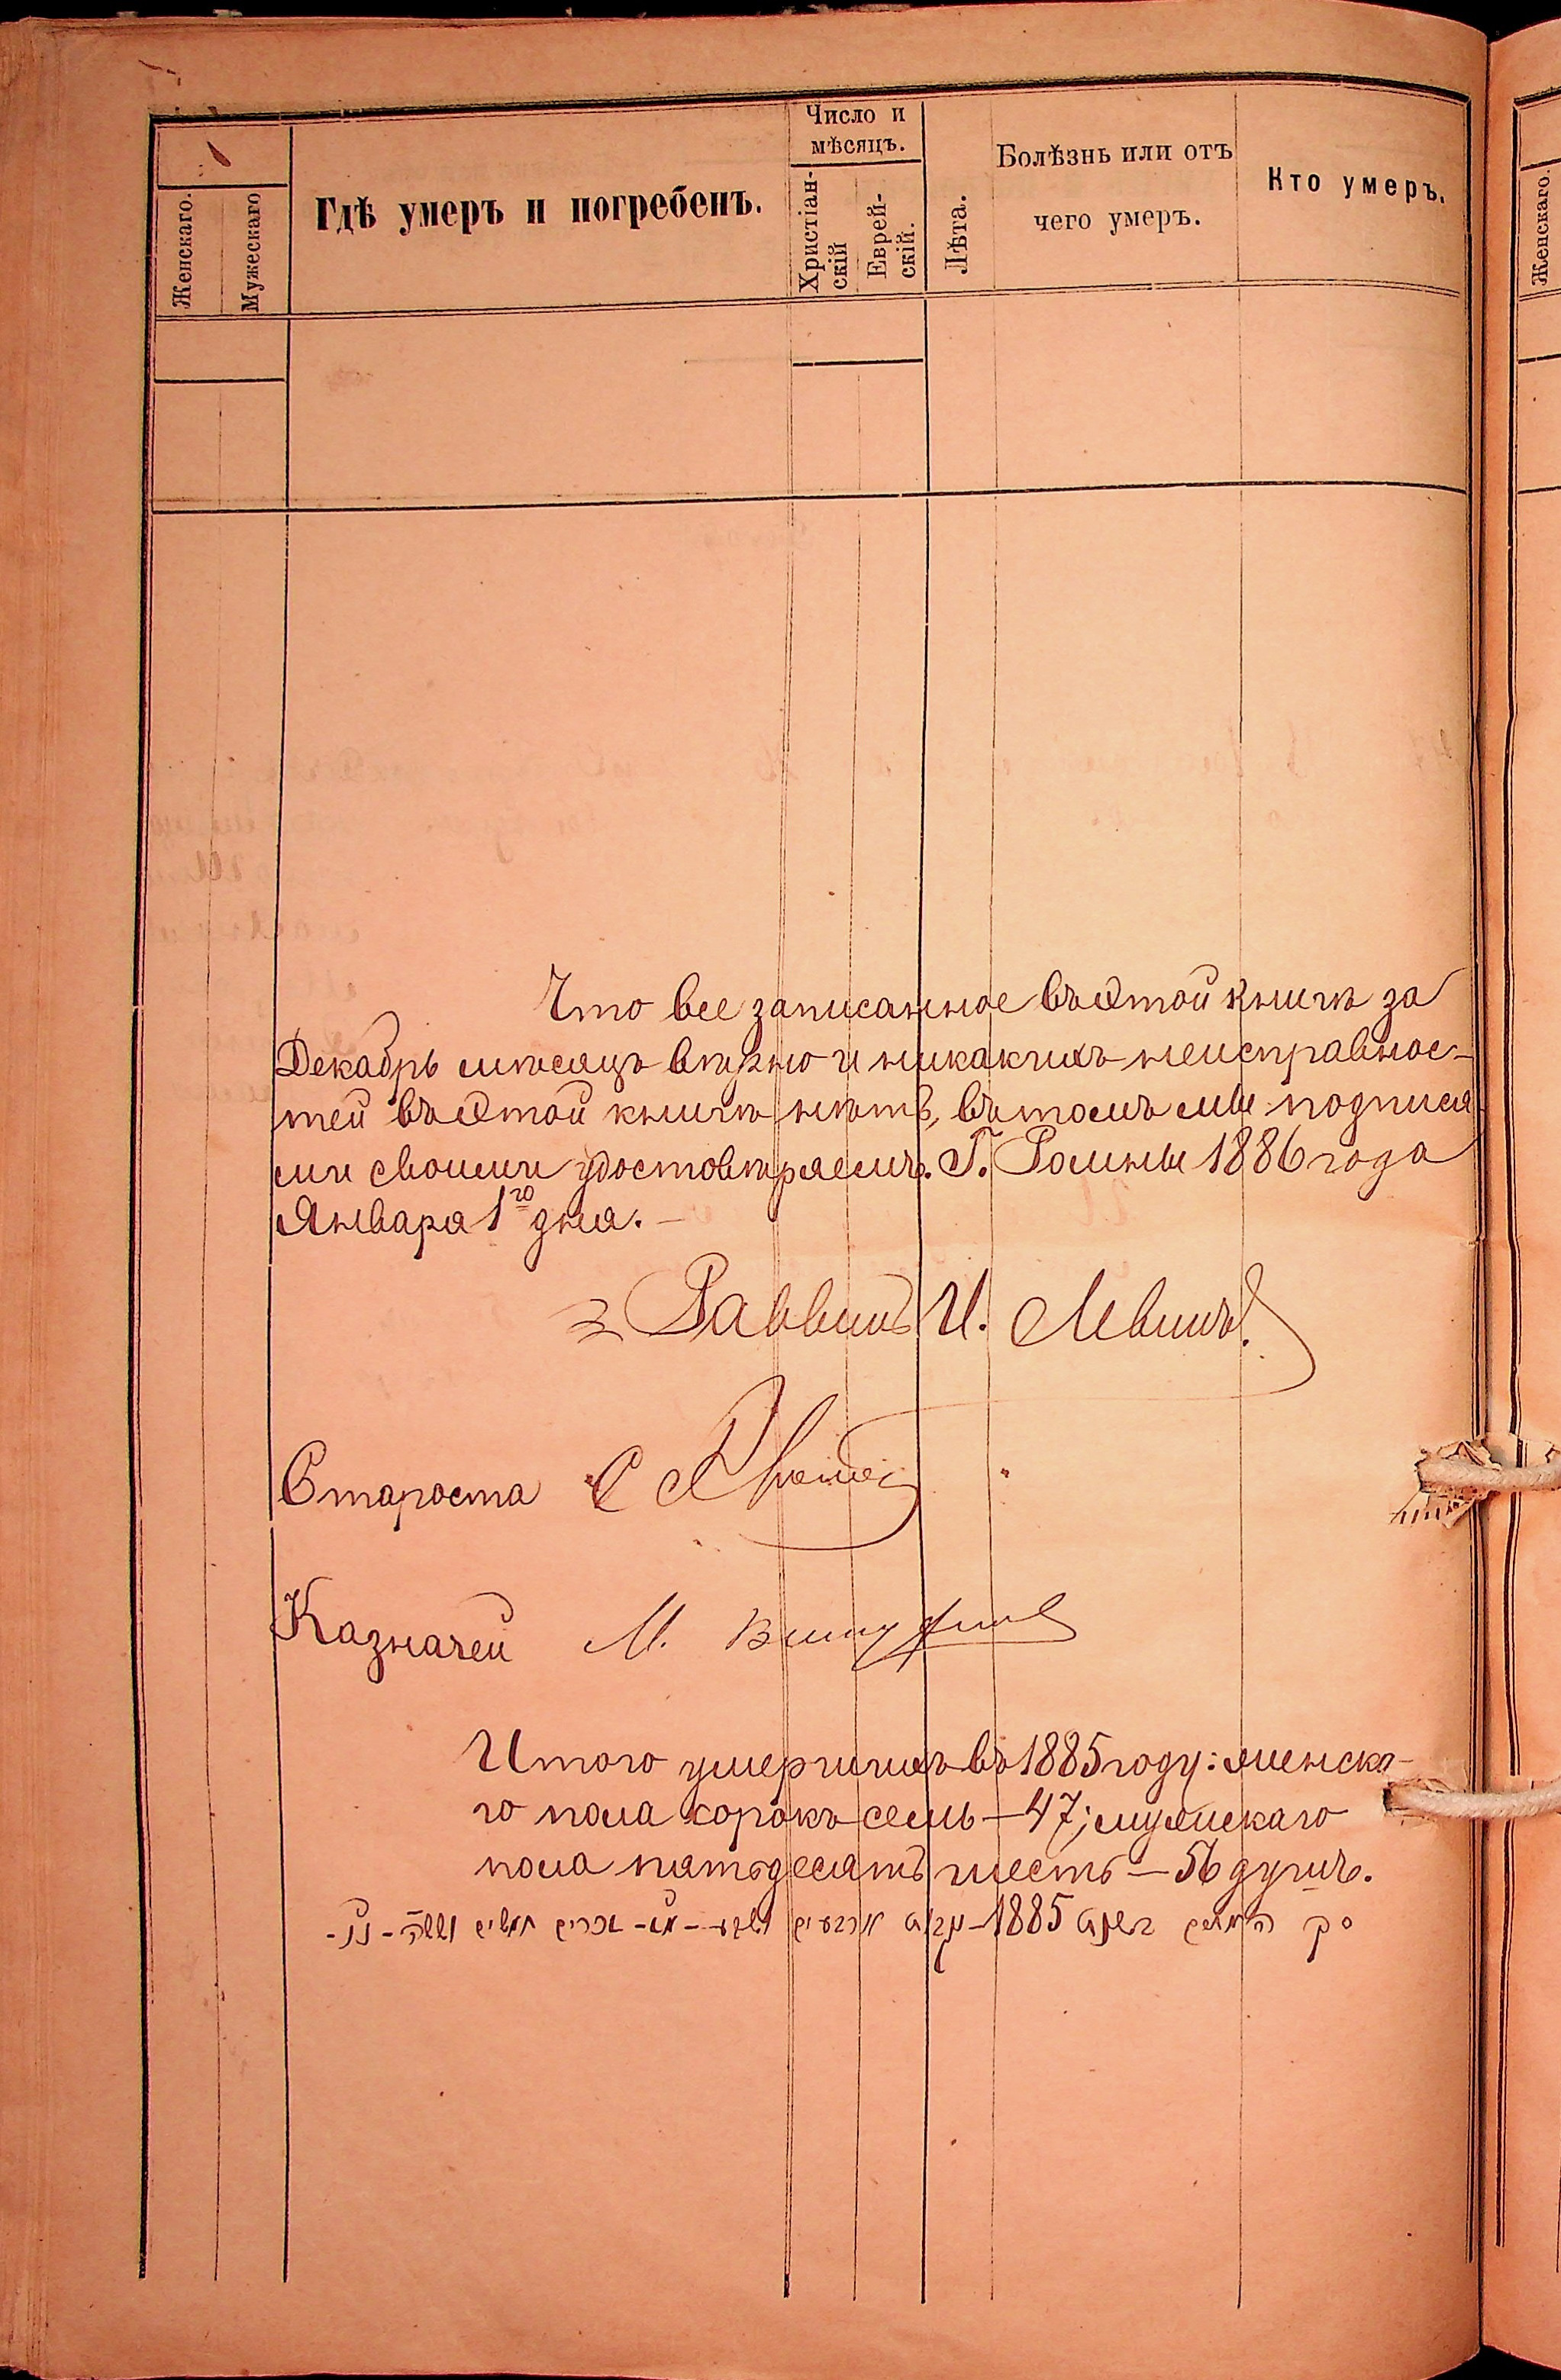 Число и
мѣсяцъ.
Женскаго.
Мужескаго
Гдѣ умеръ и погребенъ.
Христіан-
скій
Еврей-
скій.
Лѣта.
Болѣзнь или отъ
чего умеръ.
Кто умеръ.
Женскаго.
Что все записанное въ этой книгѣ за
Декабрь мѣсяцъ вѣрно и никакихъ неисправнос-
тей въ этой книгѣ нѣтъ, въ томъ мы подпися-
ми своими удостовѣряемъ. Г. Ромны 1886 года
Января 1го дня. —
Раввинъ И. Левинъ.
Староста С
Казначей М.
Итого умершихъ въ 1885 году: женска-
го пола сорокъ семь — 47; мужискаго
пола пятьдесятъ шесть — 56 душъ.
ס"ק המתים בשנת 1885 – נקבות ארבעים ושבע – מ"ז – זכרים חמשים וששה – נ"ו –